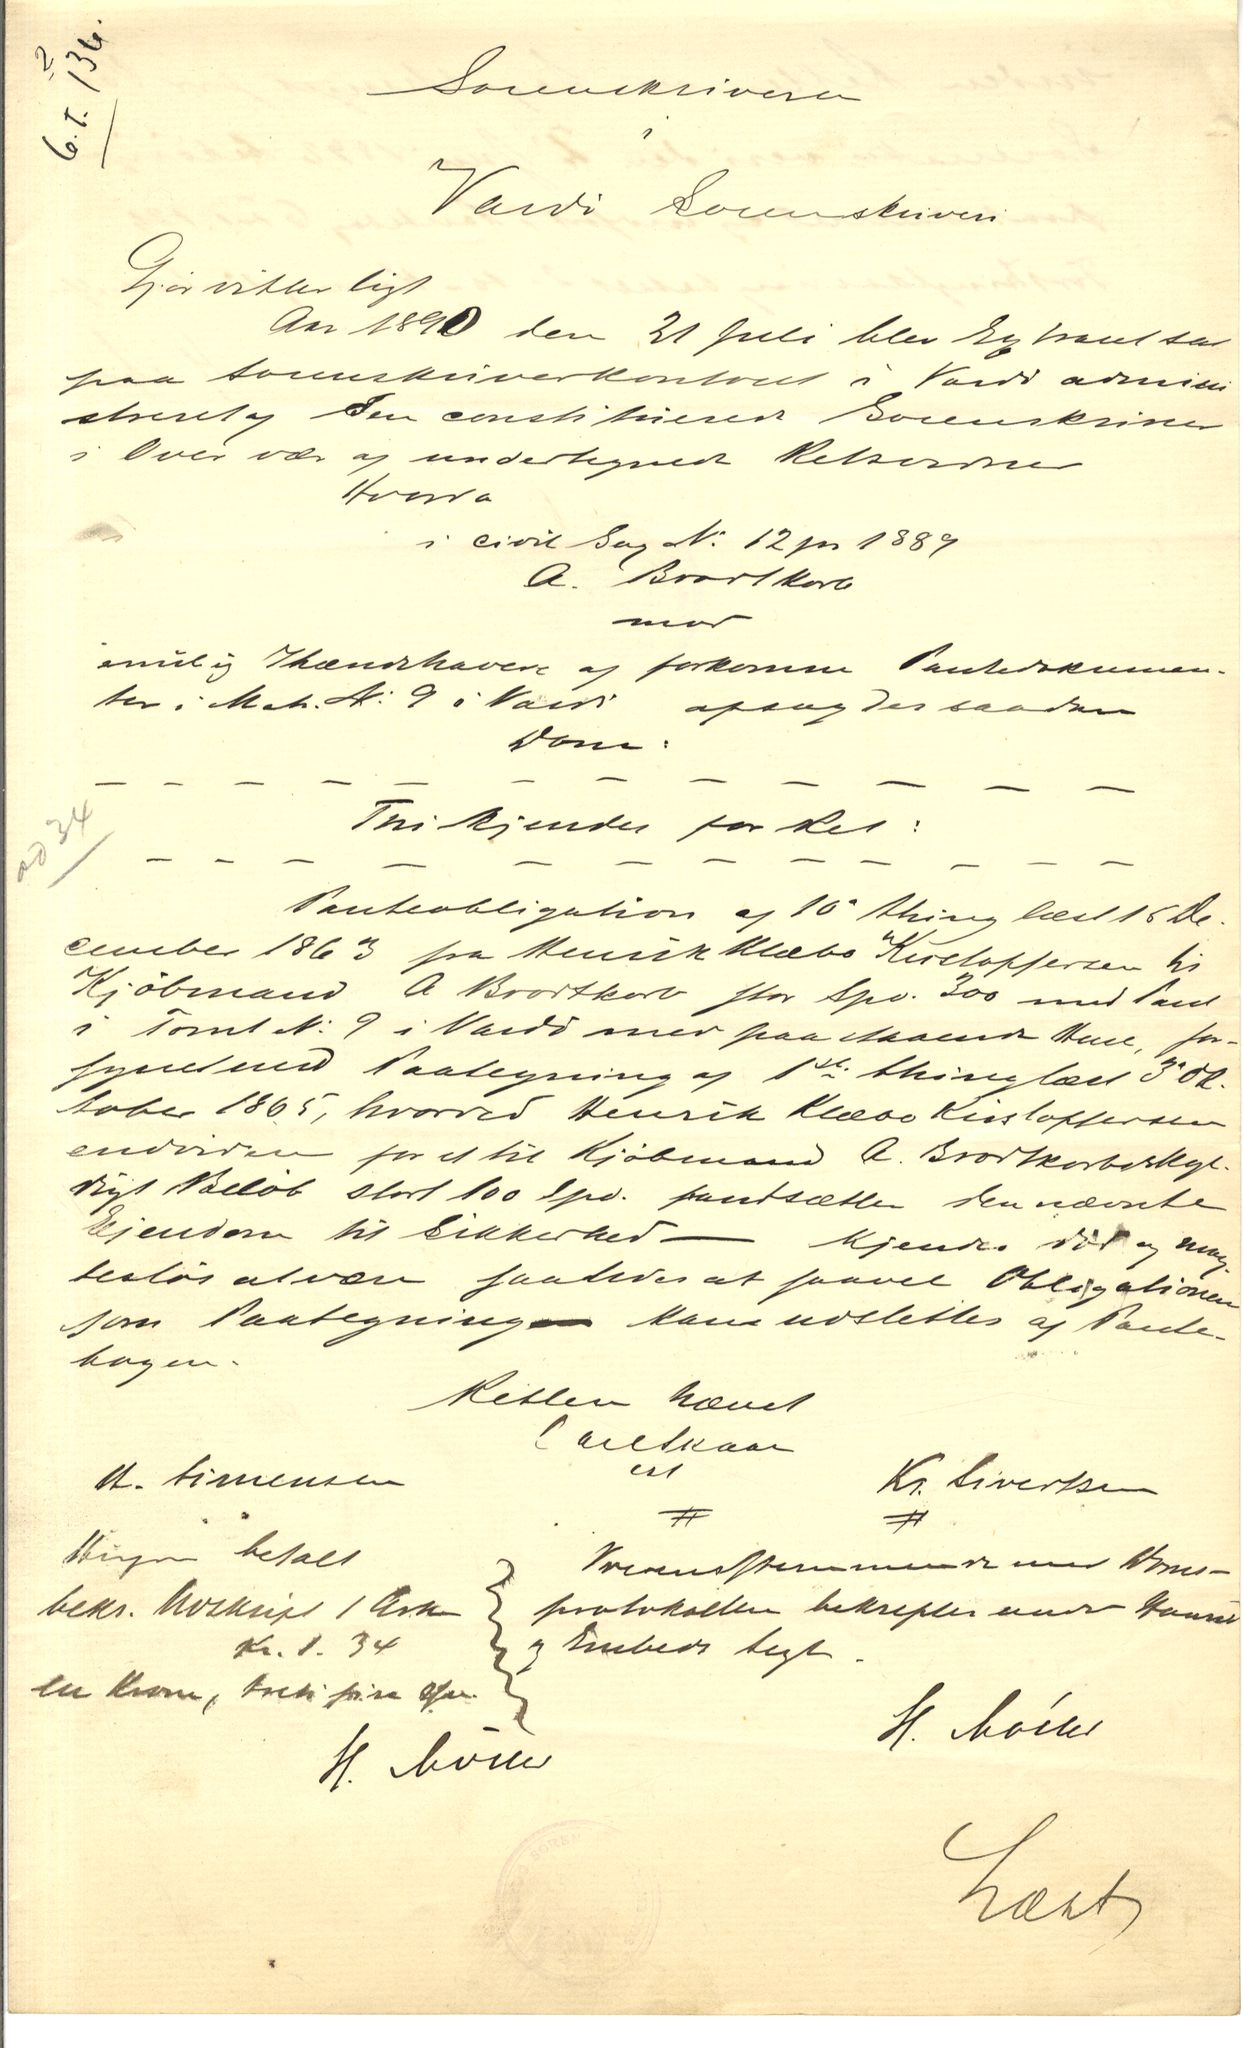 6.I.136.
2
Sorenskriveren
i
Vardö Sorenskriveri
Gjör vitterligt
Aar 1890 den 21 Juli blev Extraret sat
paa Sorenskriverkontoret i Vardö admini
streret af den constituerede Sorenskriver
i Overvær af undertegnede Retsvidner
Hvorda
i civil Sag N: 12 pr 1889
A. Brodtkorb
mod
mulig Ihændehavere af forkomne Pantedokumen-
ter i Mat. N: 9 i Vardö afsagdes saadan
Dom:
Thi kjendes for Ret:
ad 34
Panteobligation af 10' thinglæst 15 De-
cember 1863 fra Henrik Klæbo Kristoffersen til
Kjöbmand A Brodtkorb stor Spd. 300 med Pant
i Tomt N: 9 i Vardö med paastaaende Huse, for-
synet med Paategning af 1ste thinglæst 3' Ok-
tober 1865, hvorved Henrik Klæbo Kristoffersen
endvidere for et til Kjöbmand A. Brodtkorb skyl-
digt Belöb stort 100 Spd. pantsætter den nævnte
Ejendom til Sikkerhed — kjendes död og mag-
teslös at være saaledes at saavel Obligationen
som Paategning kan udslettes af Pante-
bogen.
Retten hævet
Carl Skaar
cst
H. Simensen
Kr. Sivertsen
# #
betalt
bekr. Udskrift 1 Ark
Kr. 1. 34
en Krone, treti fire Öre
H. Möller
Overensstemmende med Doms-
protokollen bekræftes under Haand
og Embeds Segl.
H. Möller
Læst